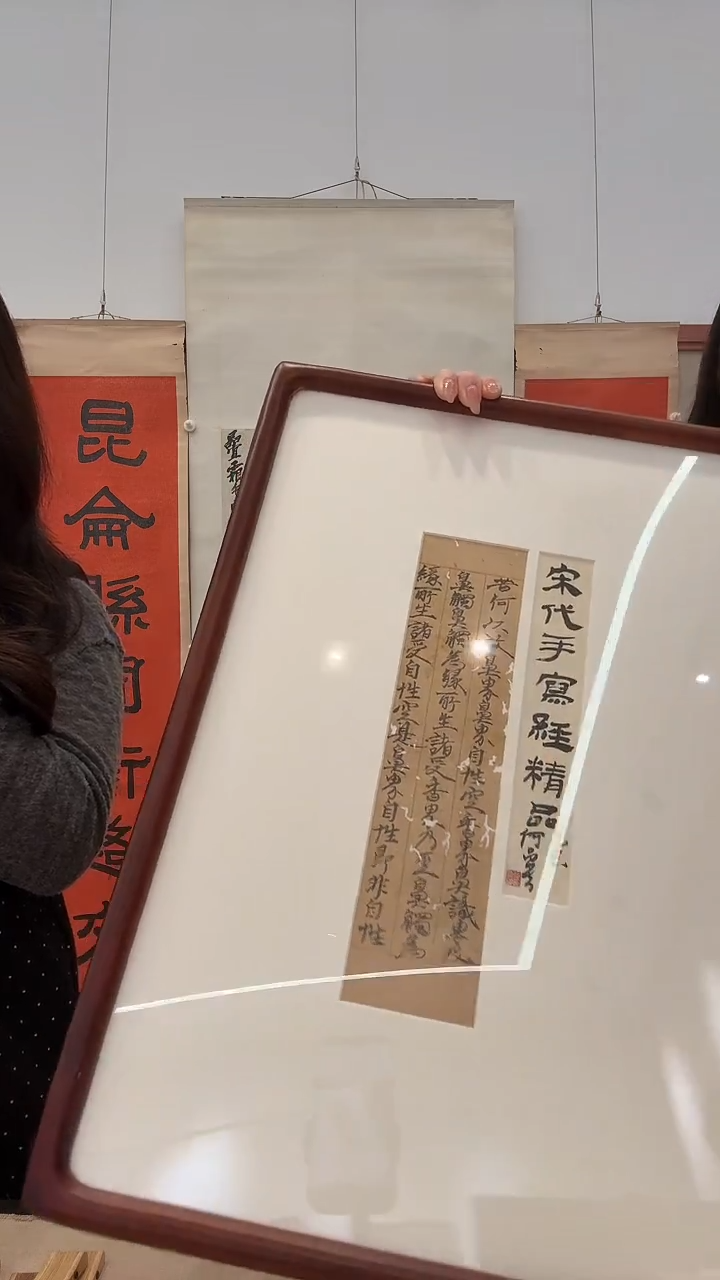 宋代手寫經精品
苦何以故鼻界鼻界自性空香界鼻識界及
鼻觸鼻觸為緣所生諸受香界乃至鼻觸為
緣所生諸受自性空是鼻界自性即非自性
昆侖縣